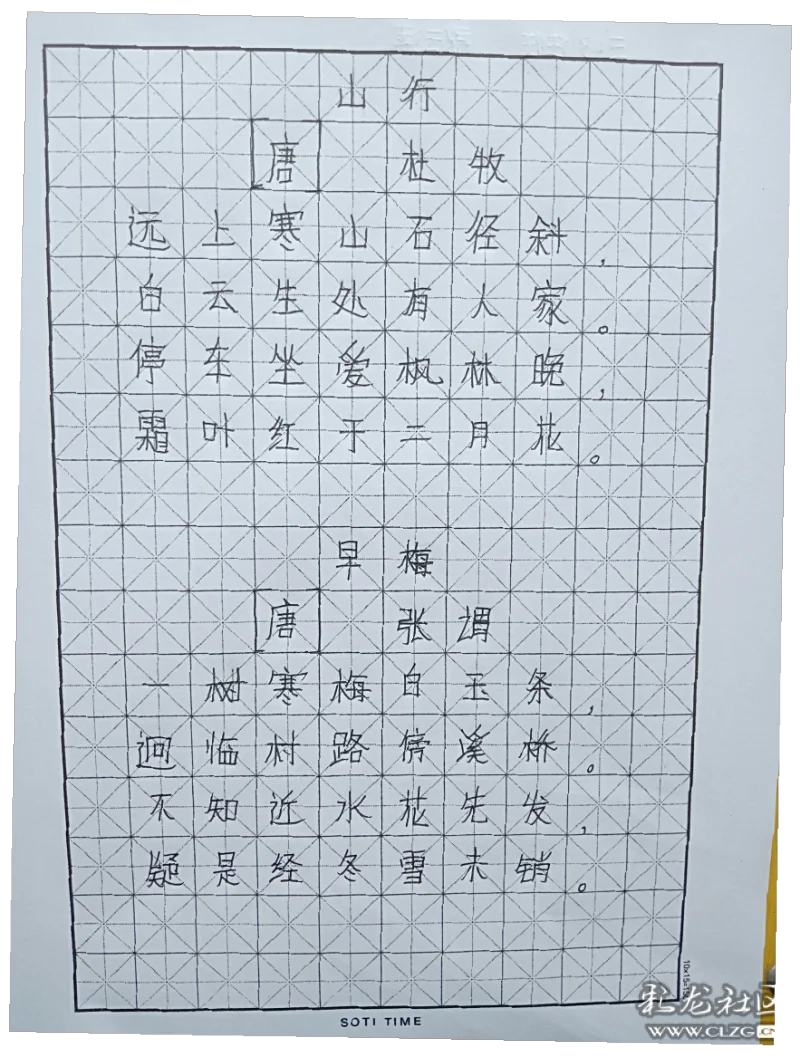 山行
唐 杜牧
远上寒山石径斜，
白云生处有人家。
停车坐爱枫林晚，
霜叶红于二月花。
早梅
唐 张谓
一树寒梅白玉条，
迥临村路傍溪桥。
不知近水花先发，
疑是经冬雪未销。
SOTI TIME
彩龙社区
www.CLZG.CN